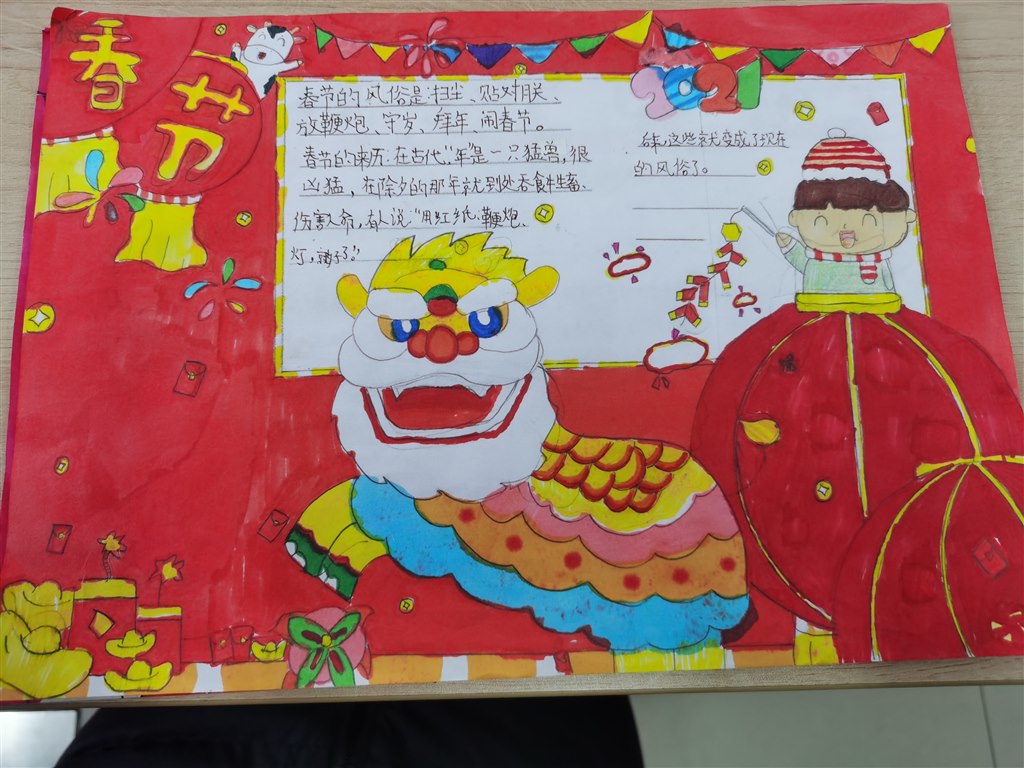 春
节
春节的风俗是:扫尘、贴对联、
放鞭炮、守岁、拜年、闹春节。
春节的来历:在古代“年”是一只猛兽,很
凶猛,在除夕的那年就到处吞食牲畜、
伤害人命,有人说:“用红纸、鞭炮、
灯,
2021
后来,这些就变成了现在
的风俗了。